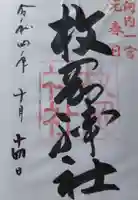 河内一宮
元春日
枚岡神社
令和四年
十月
十四日